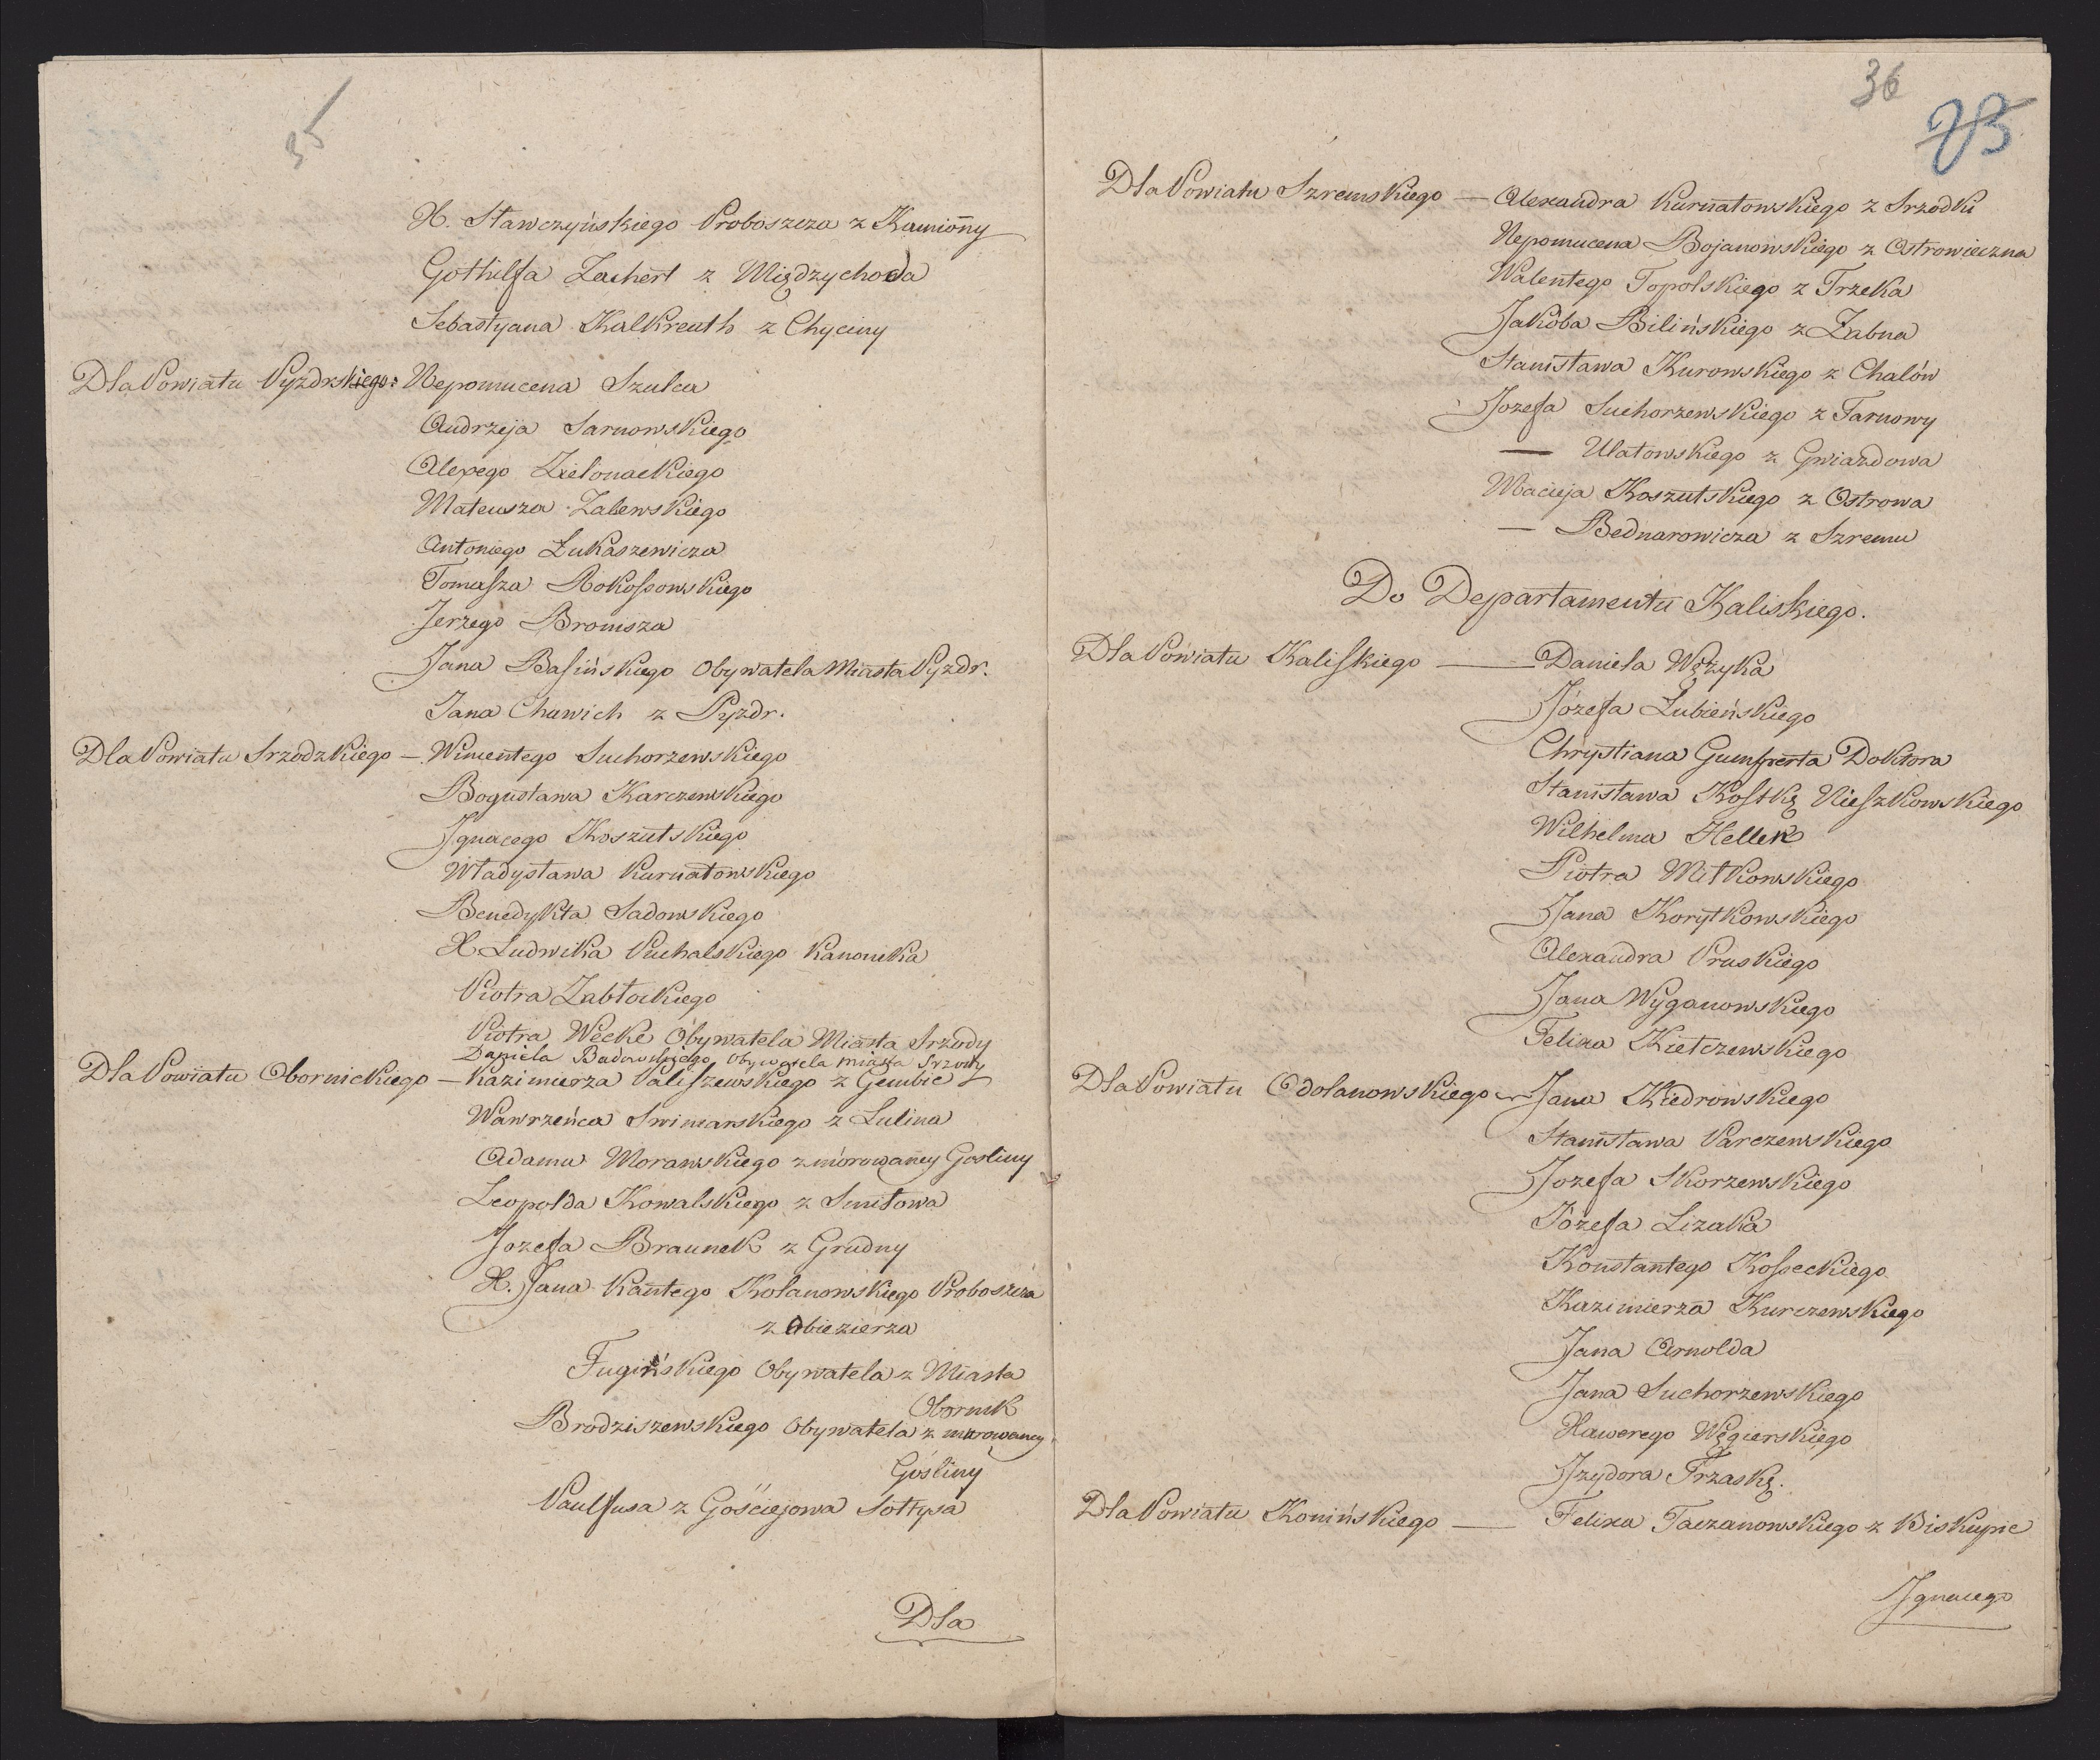 35
X. Stawczyńskiego Proboszcza z Kamionny
Gothilfa Zachert z Międzychoda
Sebastyana Kalkreuth z Chyciny
Dla Powiatu Pyzdrskiego: Nepomucena Szulca
Andrzeja Sarnowskiego
Alexego Zielonackiego
Mateusza Zalewskiego
Antoniego Łukaszewicza
Tomasza Rokossowskiego
Jerzego Bromsza
Jana Basińskiego Obywatela Miasta Pyzdr.
Jana Chawich z Pyzdr.
Dla Powiatu Srzodzkiego — Wincentego Suchorzewskiego
Bogusława Karczewskiego
Ignacego Koszutskiego
Władysława Kurnatowskiego
Benedykta Sadowskiego
X Ludwika Puchalskiego Kanonika
Piotra Zabłockiego
Piotra Wecke Obywatela Miasta Srzody
Daniela Badowskiego Obywatela miasta Srzody
Dla Powiatu Obornickiego — Kazimierza Paliszewskiego z Gembic
Wawrzeńca Swinarskiego z Lulina
Adama Morawskiego z mórowaney Gosliny
Leopolda Kowalskiego z Smiłowa
Jozefa Braunek z Grudny
X. Jana Kantego Kolanowskiego Proboszcza
z Obiezierza
Fugińskiego Obywatela z Miasta
Obornik
Brodziszewskiego Obywatela z murowaney
Gósliny
Paulfusa z Gościejowa Sołtysa
Dla
36
Dla Powiatu Szremskiego — Alexandra Kurnatowskiego z Srzodki
Nepomucena Bojanowskiego z Ostrowieczna
Walentego Topolskiego z Trzeka
Jakóba Bilińskiego z Żabna
Stanisława Kurowskiego z Chalów
Jozefa Suchorzewskiego z Tarnowy
— Ulatowskiego z Gwiazdowa
Macieja Koszutskiego z Ostrowa
— Bednarowicza z Szremu
Do Departamentu Kaliskiego.
Dla Powiatu Kaliskiego — Daniela Wężyka
Józefa Łubieńskiego
Chrystiana Gumperta Doktora
Stanisława Kostkę Nieszkowskiego
Wilhelma Heller
Piotra Miłkowskiego
Jana Korytkowskiego
Alexandra Pruskiego
Jana Wyganowskiego
Felixa Kiełczewskiego
Dla Powiatu Odolanowskiego — Jana Kiedrowskiego
Stanisława Parczewskiego
Jozefa Skorzewskiego
Józefa Lizaka
Konstantego Kosseckiego
Kazimierza Kurczewskiego
Jana Arnolda
Jana Suchorzewskiego
Xawerego Węgierskiego
Izydora Trzaskę.
Dla Powiatu Konińskiego — Felixa Taczanowskiego z Biskupic
Ignacego